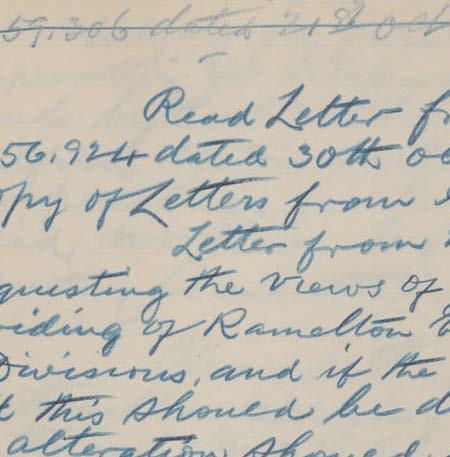 59,306 dated 21st oct
Read Letter fr
56,924 dated 30th oc
opy of Letters from
Letter from
questing the views of
viding of Ramelton
Divisions, and if the
t this should be d
alteration should